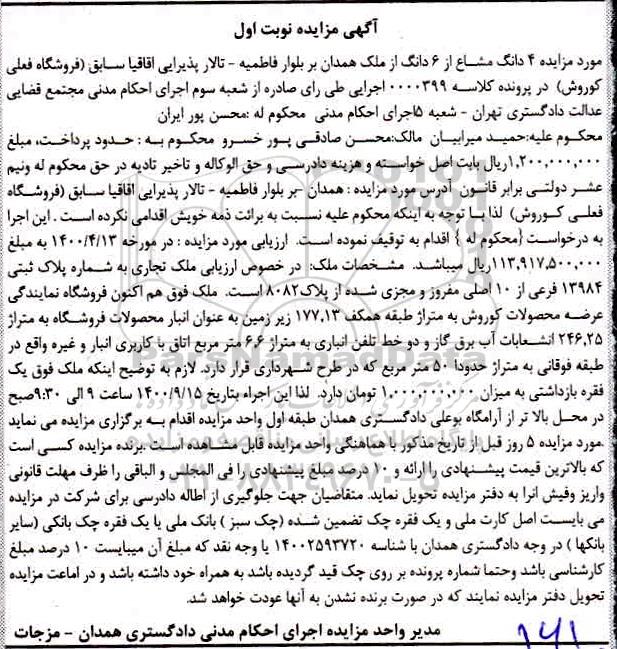 آگهی مزایده نوبت اول
مورد مزایده ۴ دانگ مشاع از ۶ دانگ از ملک همدان بر بلوار فاطمیه - تالار پذیرایی اقاقیا سابق (فروشگاه فعلی
کوروش) در پرونده کلاسه ۰۰۰۰۳۹۹ اجرایی طی رای صادره از شعبه سوم اجرای احکام مدنی مجتمع قضایی
عدالت دادگستری تهران - شعبه ۵اجرای احکام مدنی محکوم له :محسن پور ایران
محکوم علیه:حمید میرابیان مالک:محسن صادقی پور خسرو محکوم به : حدود پرداخت، مبلغ
۱,۲۰۰,۰۰۰,۰۰۰ریال بابت اصل خواسته و هزینه دادرسی و حق الوکاله و تاخیر تادیه در حق محکوم له ونیم
عشر دولتی برابر قانون آدرس مورد مزایده : همدان -بر بلوار فاطمیه - تالار پذیرایی اقاقیا سابق (فروشگاه
فعلی کوروش) لذا با توجه به اینکه محکوم علیه نسبت به برائت ذمه خویش اقدامی نکرده است . این اجرا
به درخواست {محکوم له } اقدام به توقیف نموده است. ارزیابی مورد مزایده : در مورخه ۱۴۰۰/۴/۱۳ به مبلغ
۱۱۳,۹۱۷,۵۰۰,۰۰۰ریال میباشد. مشخصات ملک: در خصوص ارزیابی ملک تجاری به شماره پلاک ثبتی
۱۳۹۸۴ فرعی از ۱۰ اصلی مفروز و مجزی شده از پلاک۸۰۸۲ است. ملک فوق هم اکنون فروشگاه نمایندگی
عرضه محصولات کوروش به متراژ طبقه همکف ۱۷۷,۱۳ زیر زمین به عنوان انبار محصولات فروشگاه به متراژ
۲۴۶,۲۵ انشعابات آب برق گاز و دو خط تلفن انباری به متراژ ۶,۶ متر مربع اتاق با کاربری انبار و غیره واقع در
طبقه فوقانی به متراژ حدودا ۵۰ متر مربع که در طرح شهرداری قرار دارد. لازم به توضیح اینکه ملک فوق یک
فقره بازداشتی به میزان ۱,۰۰۰,۰۰۰,۰۰۰ تومان دارد. لذا این اجراء بتاریخ ۱۴۰۰/۹/۱۵ ساعت ۹ الی ۹:۳۰صبح
در محل بالا تر از آرامگاه بوعلی دادگستری همدان طبقه اول واحد مزایده اقدام به برگزاری مزایده می نماید
.مورد مزایده ۵ روز قبل از تاریخ مذکور باهماهنگی واحد مزایده قابل مشاهده است .برنده مزایده کسی است
که بالاترین قیمت پیشنهادی را ارائه و ۱۰ درصد مبلغ پیشنهادی را فی المجلس و الباقی را ظرف مهلت قانونی
واریز وفیش آنرا به دفتر مزایده تحویل نماید. متقاضیان جهت جلوگیری از اطاله دادرسی برای شرکت در مزایده
می بایست اصل کارت ملی و یک فقره چک تضمین شده (چک سبز ) بانک ملی یا یک فقره چک بانکی (سایر
بانکها ) در وجه دادگستری همدان با شناسه ۱۴۰۰۲۵۹۳۷۲۰ یا وجه نقد که مبلغ آن میبایست ۱۰ درصد مبلغ
کارشناسی باشد وحتما شماره پرونده بر روی چک قید گردیده باشد به همراه خود داشته باشد و در اماعت مزایده
تحویل دفتر مزایده نمایند که در صورت برنده نشدن به آنها عودت خواهد شد.
مدیر واحد مزایده اجرای احکام مدنی دادگستری همدان - مزجات
ParsNamadData
۰۲۱-۸۸۳۴۹۶۷۰-۵